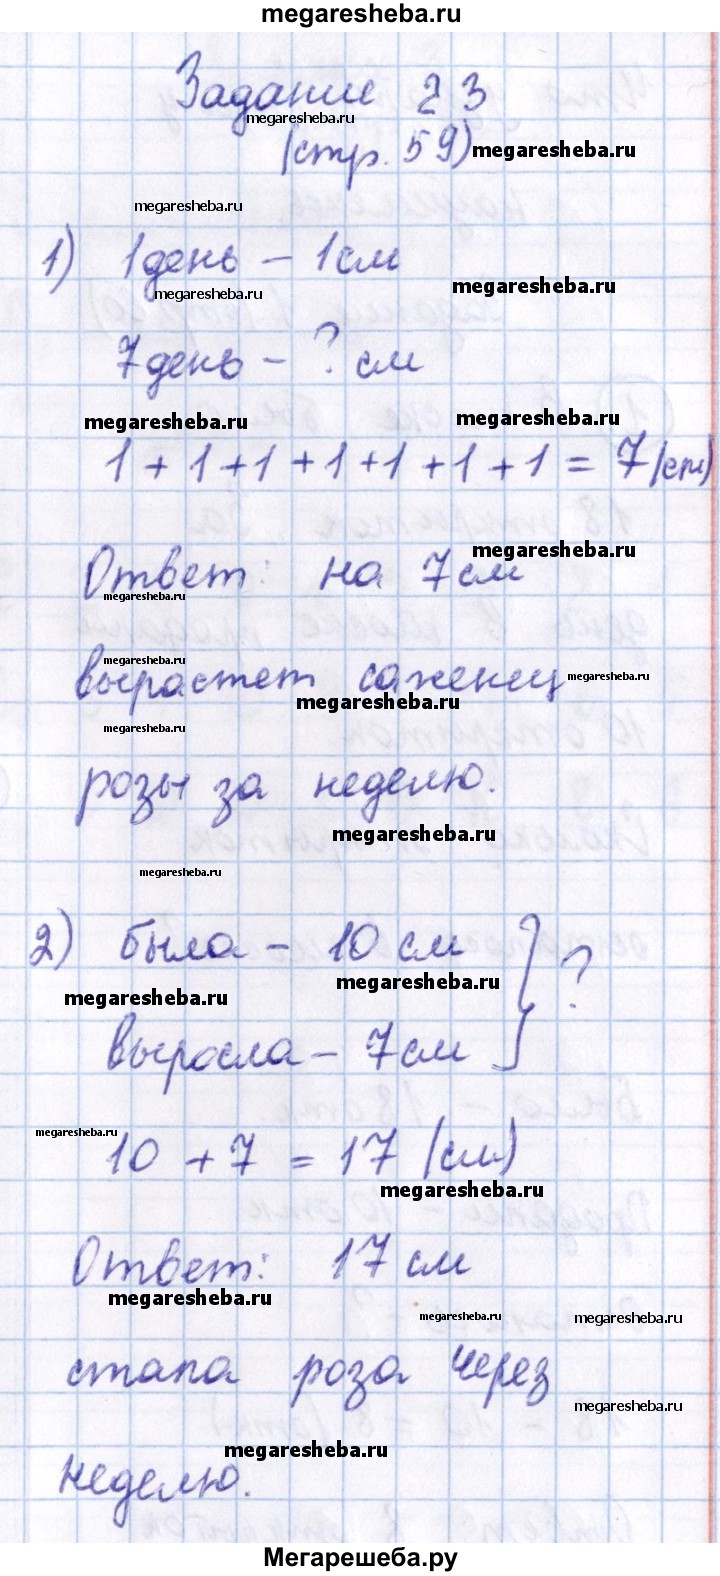 megaresheba.ru
Задание 23
megaresheba.ru
(стр. 59) megaresheba.ru
megaresheba.ru
1) 1 день – 1 см
megaresheba.ru megaresheba.ru
7 день – ? см
megaresheba.ru megaresheba.ru
1 + 1 + 1 + 1 + 1 + 1 + 1 = 7 (см)
megaresheba.ru
Ответ: на 7 см
megaresheba.ru
megaresheba.ru
вырастет саженец megaresheba.ru
megaresheba.ru
megaresheba.ru
розы за неделю.
megaresheba.ru
megaresheba.ru
2) была – 10 см } ?
megaresheba.ru megaresheba.ru
выросла – 7 см
megaresheba.ru
10 + 7 = 17 (см)
megaresheba.ru
Ответ: 17 см
megaresheba.ru
megaresheba.ru megaresheba.ru
стала роза через
megaresheba.ru
megaresheba.ru
неделю.
Мегарешеба.ру